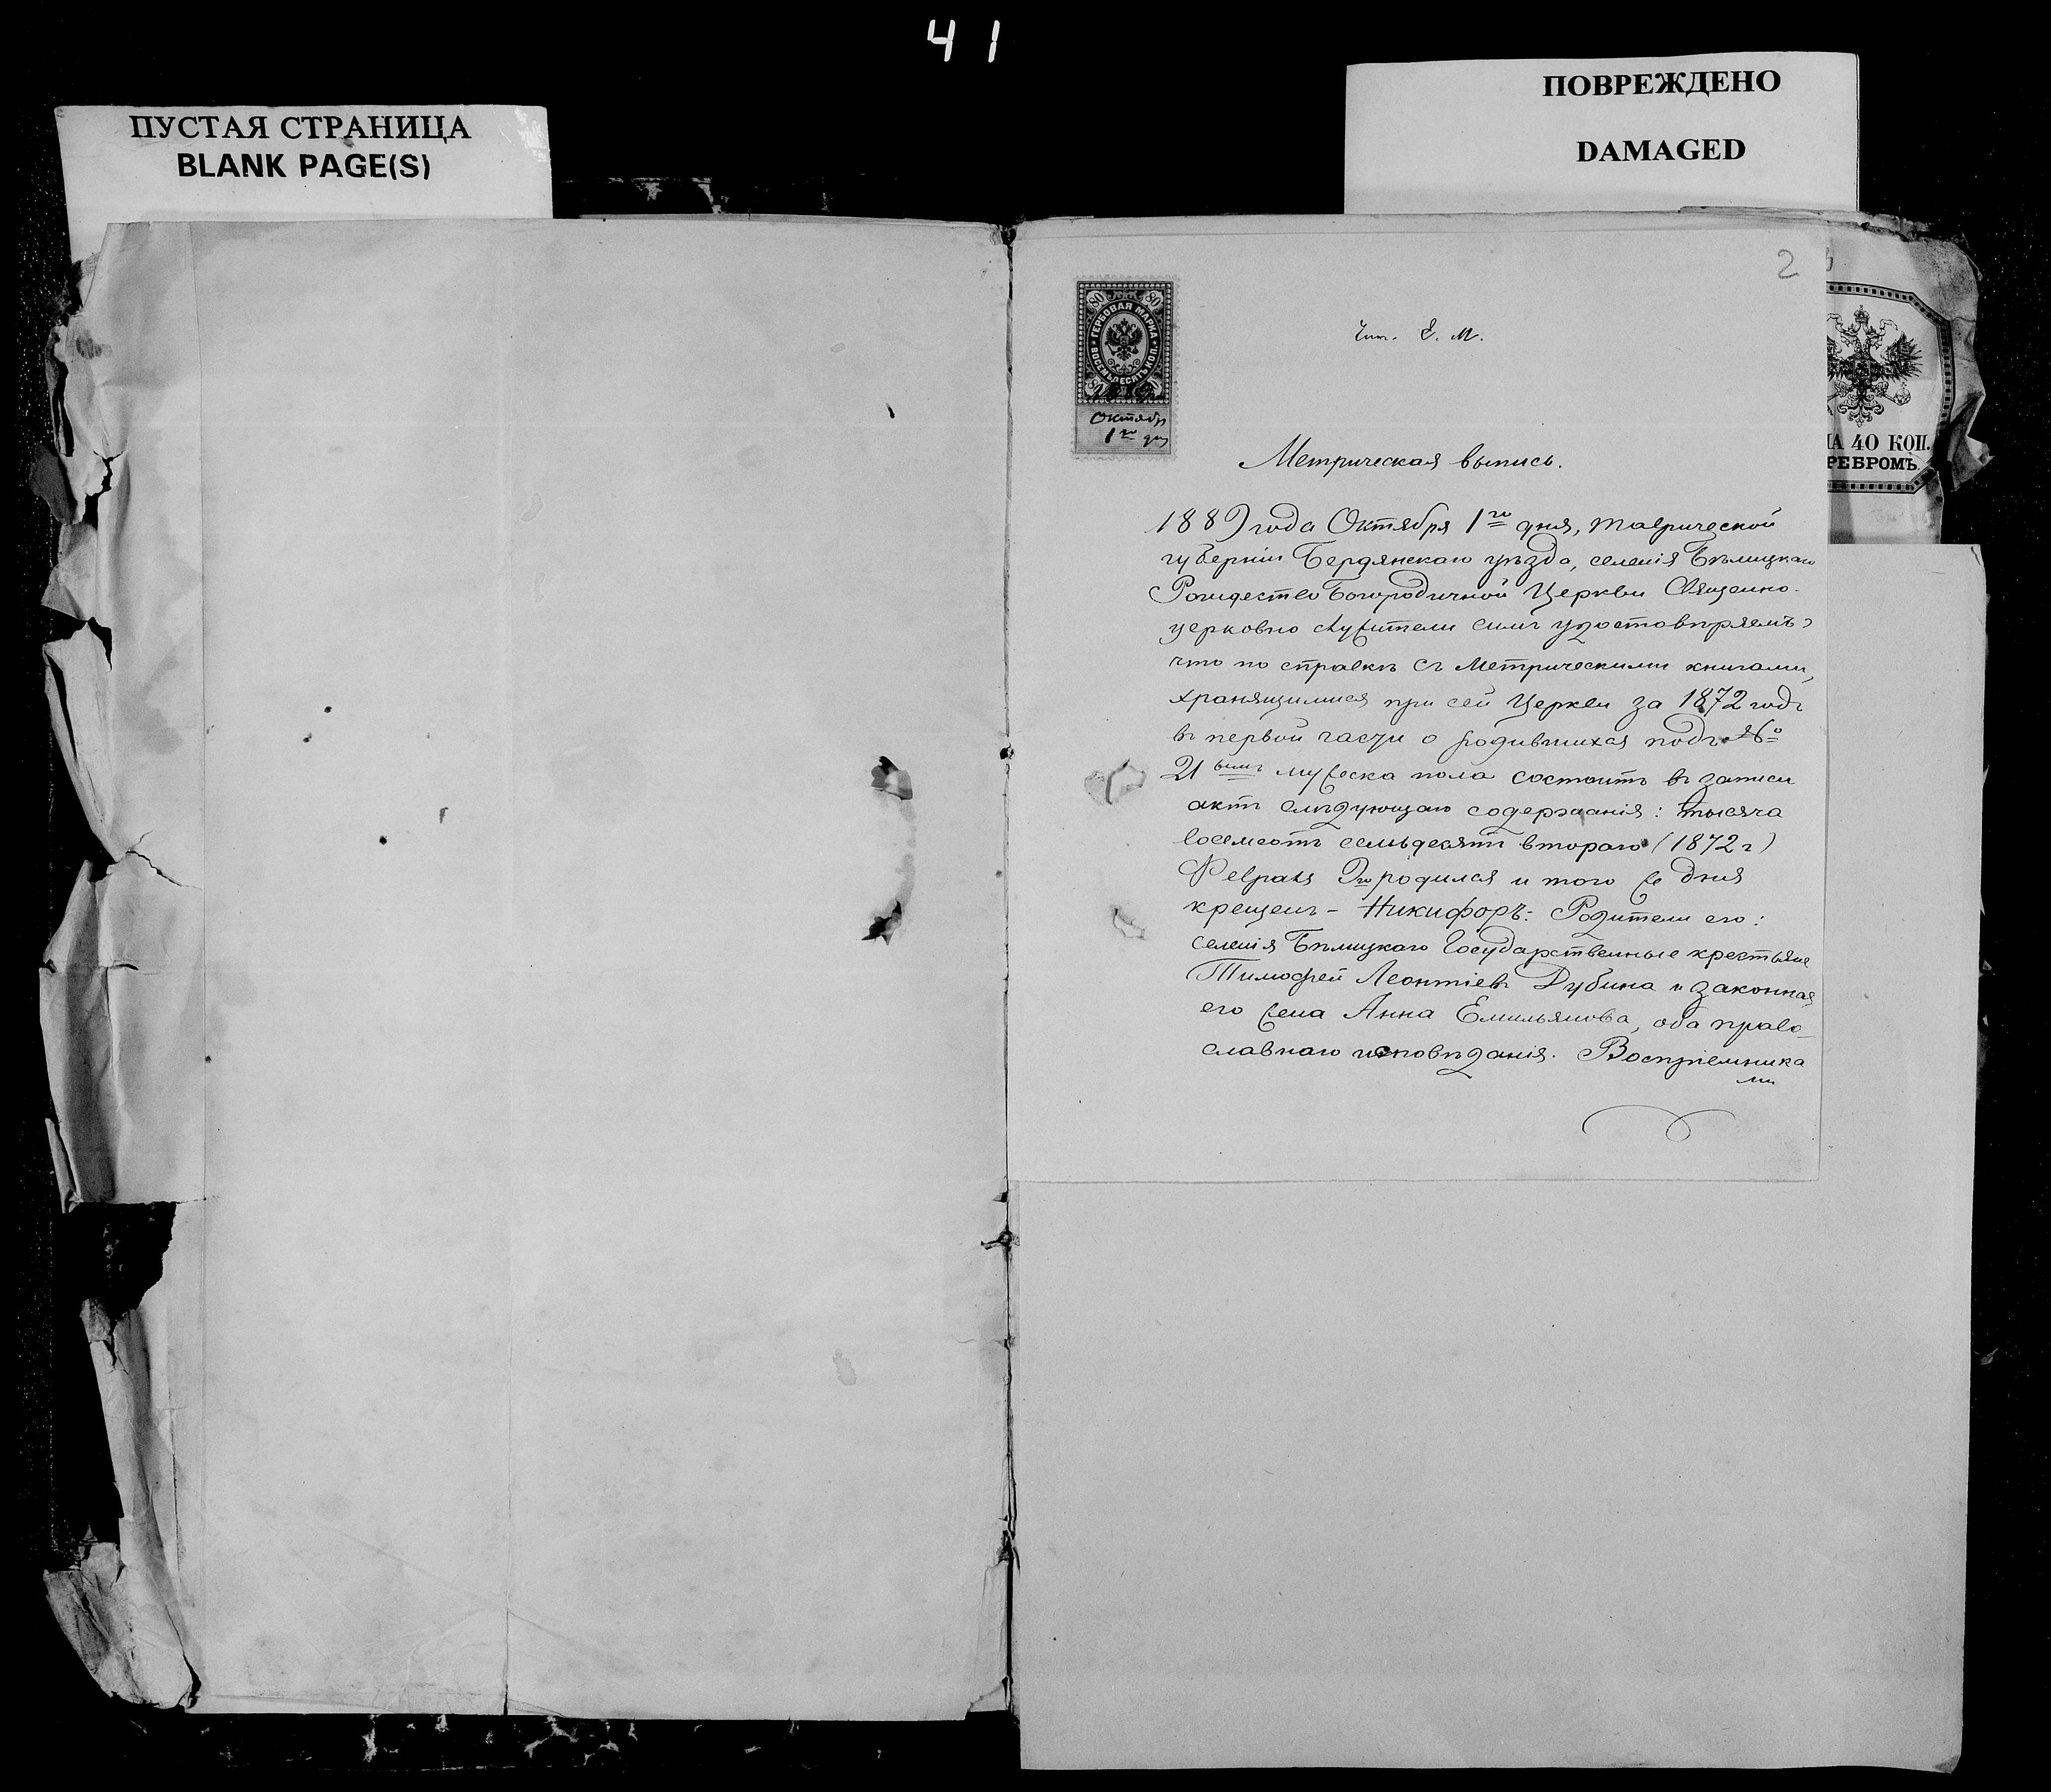 41
ПУСТАЯ СТРАНИЦА
BLANK PAGE(S)
ПОВРЕЖДЕНО
DAMAGED
2
80 80
ГЕРБОВАЯ МАРКА
ВОСЕМЬДЕСЯТЪ КОП.
80
Октября
1го дня
НА 40 КОП.
СЕРЕБРОМЪ.
Чит. Е. М.
Метрическая выпись.
1889 года Октября 1го дня, Таврической
губерніи Бердянскаго уѣзда, селенія Бѣлицкаго
Рождество Богородичной Церкви Священно-
церковно служители симъ удостовѣряемъ,
что по справкѣ съ Метрическими книгами,
хранящимися при сей Церкви за 1872 годъ
въ первой части о родившихся подъ №
21ымъ мужеска пола состоитъ въ записи
актъ слѣдующаго содержанія: тысяча
восемсотъ семьдесятъ втораго (1872 г)
Февраля родился и того же дня
крещенъ - Никифоръ: Родители его:
селенія Бѣлицкаго Государственные крестьяне
Тимофей Леонтіевъ Дубина и законная
его жена Анна Емильянова, оба право-
славнаго исповѣданія. Воспріемника
ми